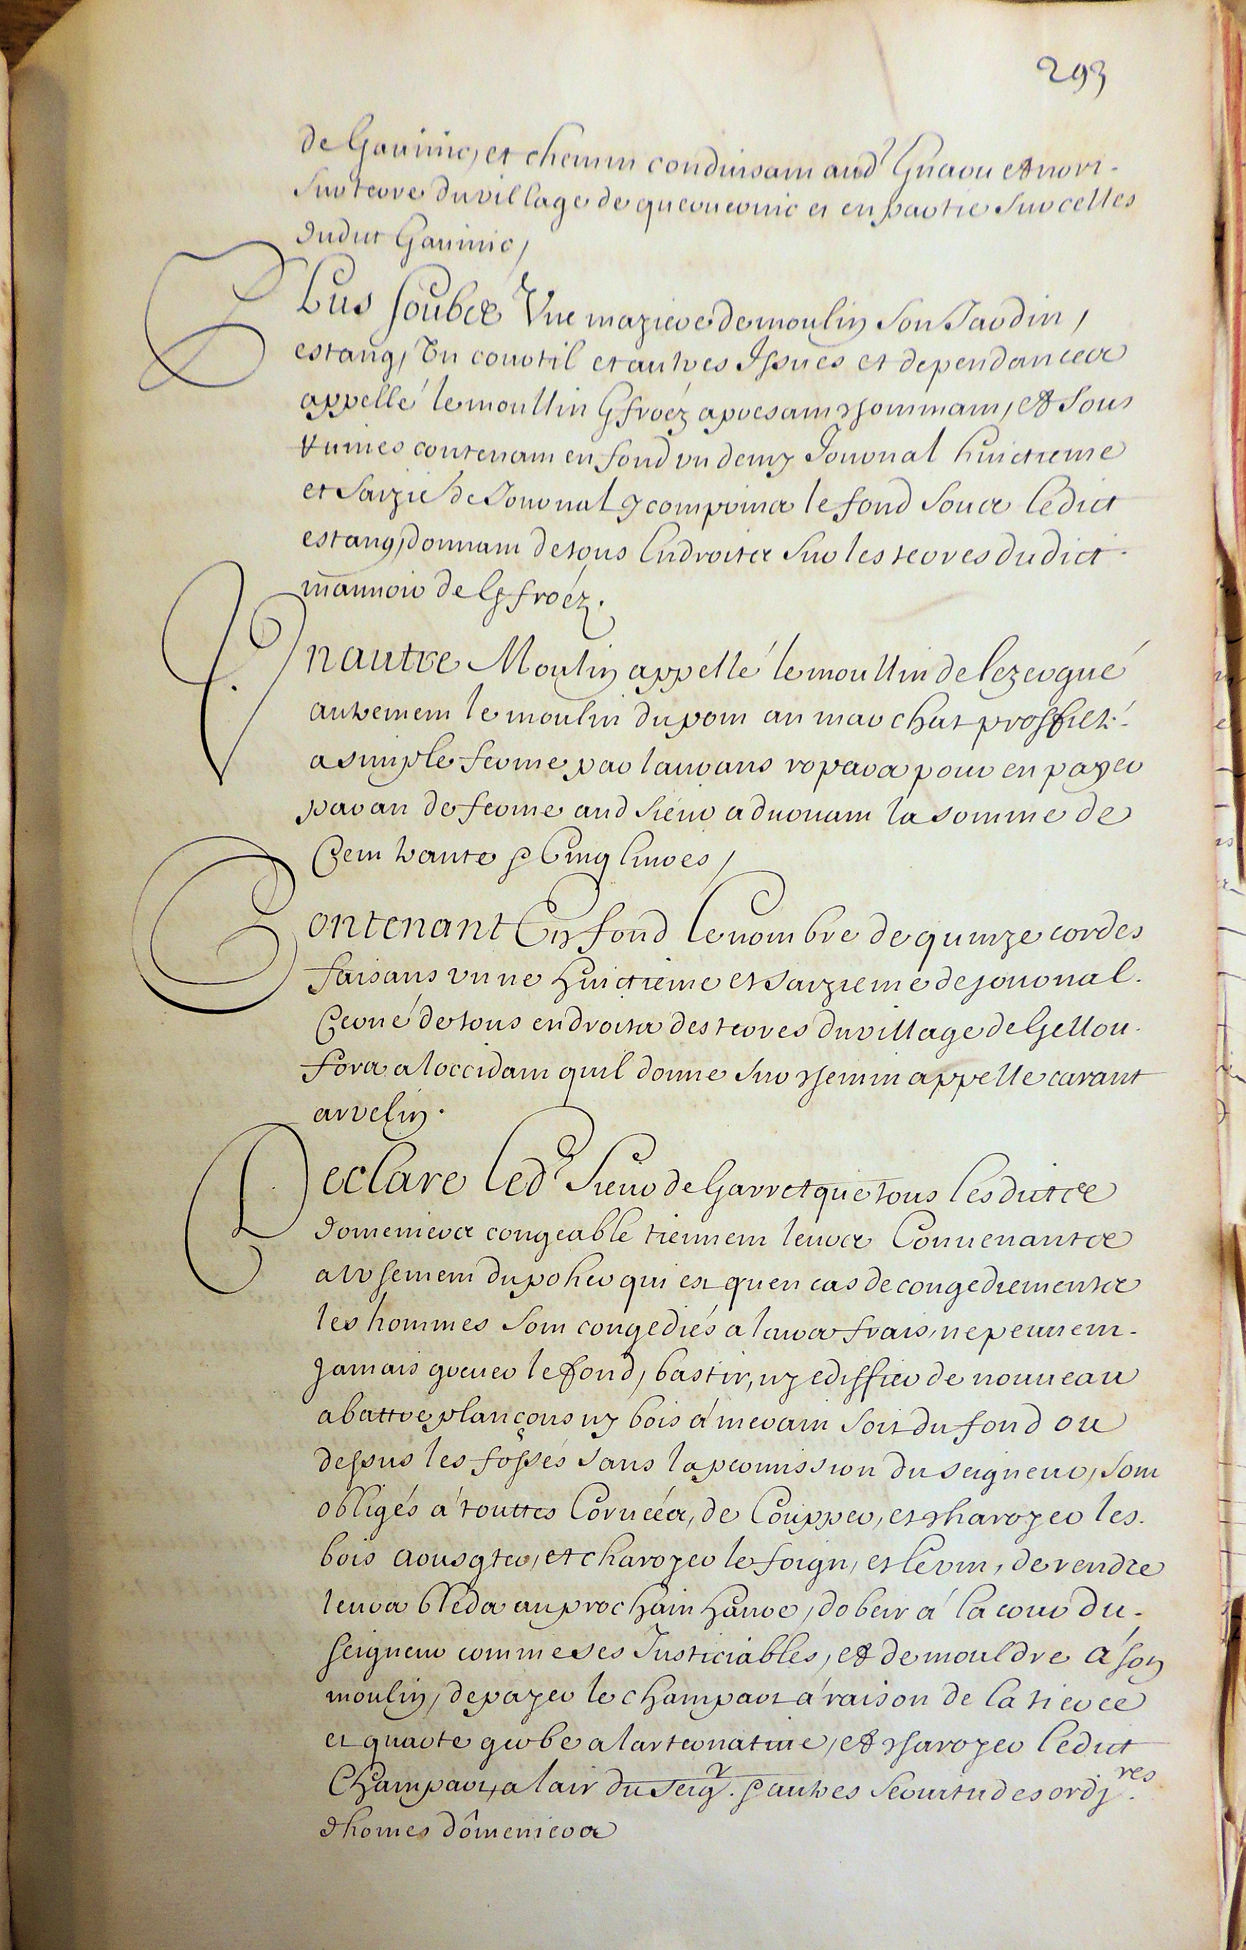 293
de Gauinic, et chemin conduisant aud Gnaou et nort
sur terre du village de queroueonic et en partie sur celles
dudit Gauinic,
Plus soubz Vne maziere de moulin son Jardin,
estang, Un courtil et autres Issues et dependances
appellé le moullin Gfroéz apresant chommant, et sous
ruines contenant en fond vn demy Journal huictieme
et saizie de Journal y comprins le fond souz ledict
estang, donnant de tous Endroitz sur les terres du dict
mannoir de Gfroéz.
Vn autre Moulin appellé le moullin de lezergué
autrement le moulin du pont an marchat proffitté
a simple ferme par laurans ropars pour en payer
par an de ferme aud sieur aduouant la somme de
Cent trante et Cinq liures,
Contenant En fond Le nombre de quinze cordes
faisans vnne huictieme et saizieme de journal.
Cerné de tous endroitz des terres du village de Gellou
fors a loccidant quil donne sur chemin appelle carant
arvelin.
Declare Led Sieur de Garret que tous Lesdictz
domeniers congeable tiennent leurs Conuenantz
a Vsement du poher qui est quen cas de congediementz
les hommes sont congediés a leurs frais, ne peuuent
Jamais greuer le fond, bastir, ny ediffier de nouueau
abattre plançons ny bois a merain soit du fond ou
dessus les fossés sans la permission du seigneur, sont
obligés a touttes Coruées, de Coupper, et charoyer les
bois aousgter, et charoyer le foign, et le vin, de rendre
leurs bleds au prochain haure, dobeir a la cour du
seigneur comme ses Justiciables, et de mouldre a son
moulin, de payer le champart a raison de la tierce
et quarte gerbe a larternatiue, et charoyer ledict
Champart, a lair du seigr. et autres seruitudes ordjres.
dhomes dômeniers